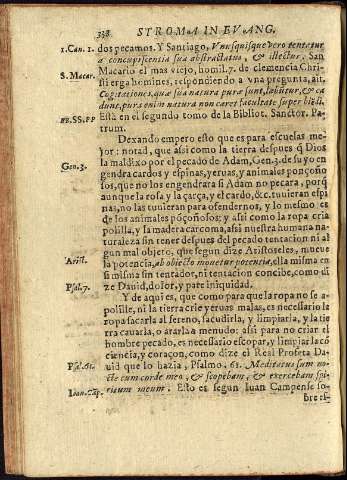 358 STROMA IN EVANG.
1.Can. 1. dos pecamos. Y Santiago, Vnusquisque vero tentatur
a concupiscentia sua abstractus, & illectus. San
S. Macar. Macario el mas viejo, homil. 7. de clemencia Chri-
sti erga homines, respondiendo a vna pregunta, ait,
Cogitationes, quæ sua natura puræ sunt, labũtur, & ca
dunt, pura enim natura non caret facultate super
BB.SS.PP Està en el segundo tomo de la Bibliot. Sanctor. Pa-
trum.
Dexando empero esto que es para escuelas me-
jor: notad, que assi como la tierra despues q̃ Dios
Gen. 3. la maldixo por el pecado de Adam, Gen. 3. de suyo en
gendra cardos y espinas, yeruas, y animales ponçoño
sos, que no los engendrara si Adam no pecara, porq̃
aunque la rosa y la çarça, el cardo, &c. tuuieran espi
nas, no las tuuieran para ofendernos, y lo mesmo es
de los animales põçoñosos; y assi como la ropa cria
polilla, y la madera carcoma, assi nuestra humana na
turaleza sin tener despues del pecado tentacion ni al
gun mal objeto, que segun dize Aristoteles, mueue
Arist. la potencia, ab obiecto mouetur potentia, ella misma en
si misma sin tentador, ni tentacion concibe, como di
Psal. 7. ze Dauid, dolor, y pare iniquidad.
Y de aqui es, que como para que la ropa no se a-
polille, ni la tierra crie yeruas malas, es necessario la
ropa sacarla al sereno, sacudirla, y limpiarla, y la tie
rra cauarla, o ararla a menudo: assi para no criar el
hombre pecado, es necessario escopar, y limpiar la cõ
ciencia, y coraçon, como dize el Real Profeta Da
Psal. 61. uid que lo hazia, Psalmo, 61. Meditatus sum no-
cte cum corde meo, & scopebam, & exercebam spi-
Ioan. Cãp. ritum meum. Esto es segun Iuan Campense so-
bre es-